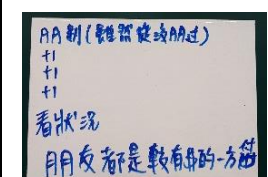 AA制(雖然從沒AA过)
+1
+1
+1
看狀況
朋友都是較有錢的一方付